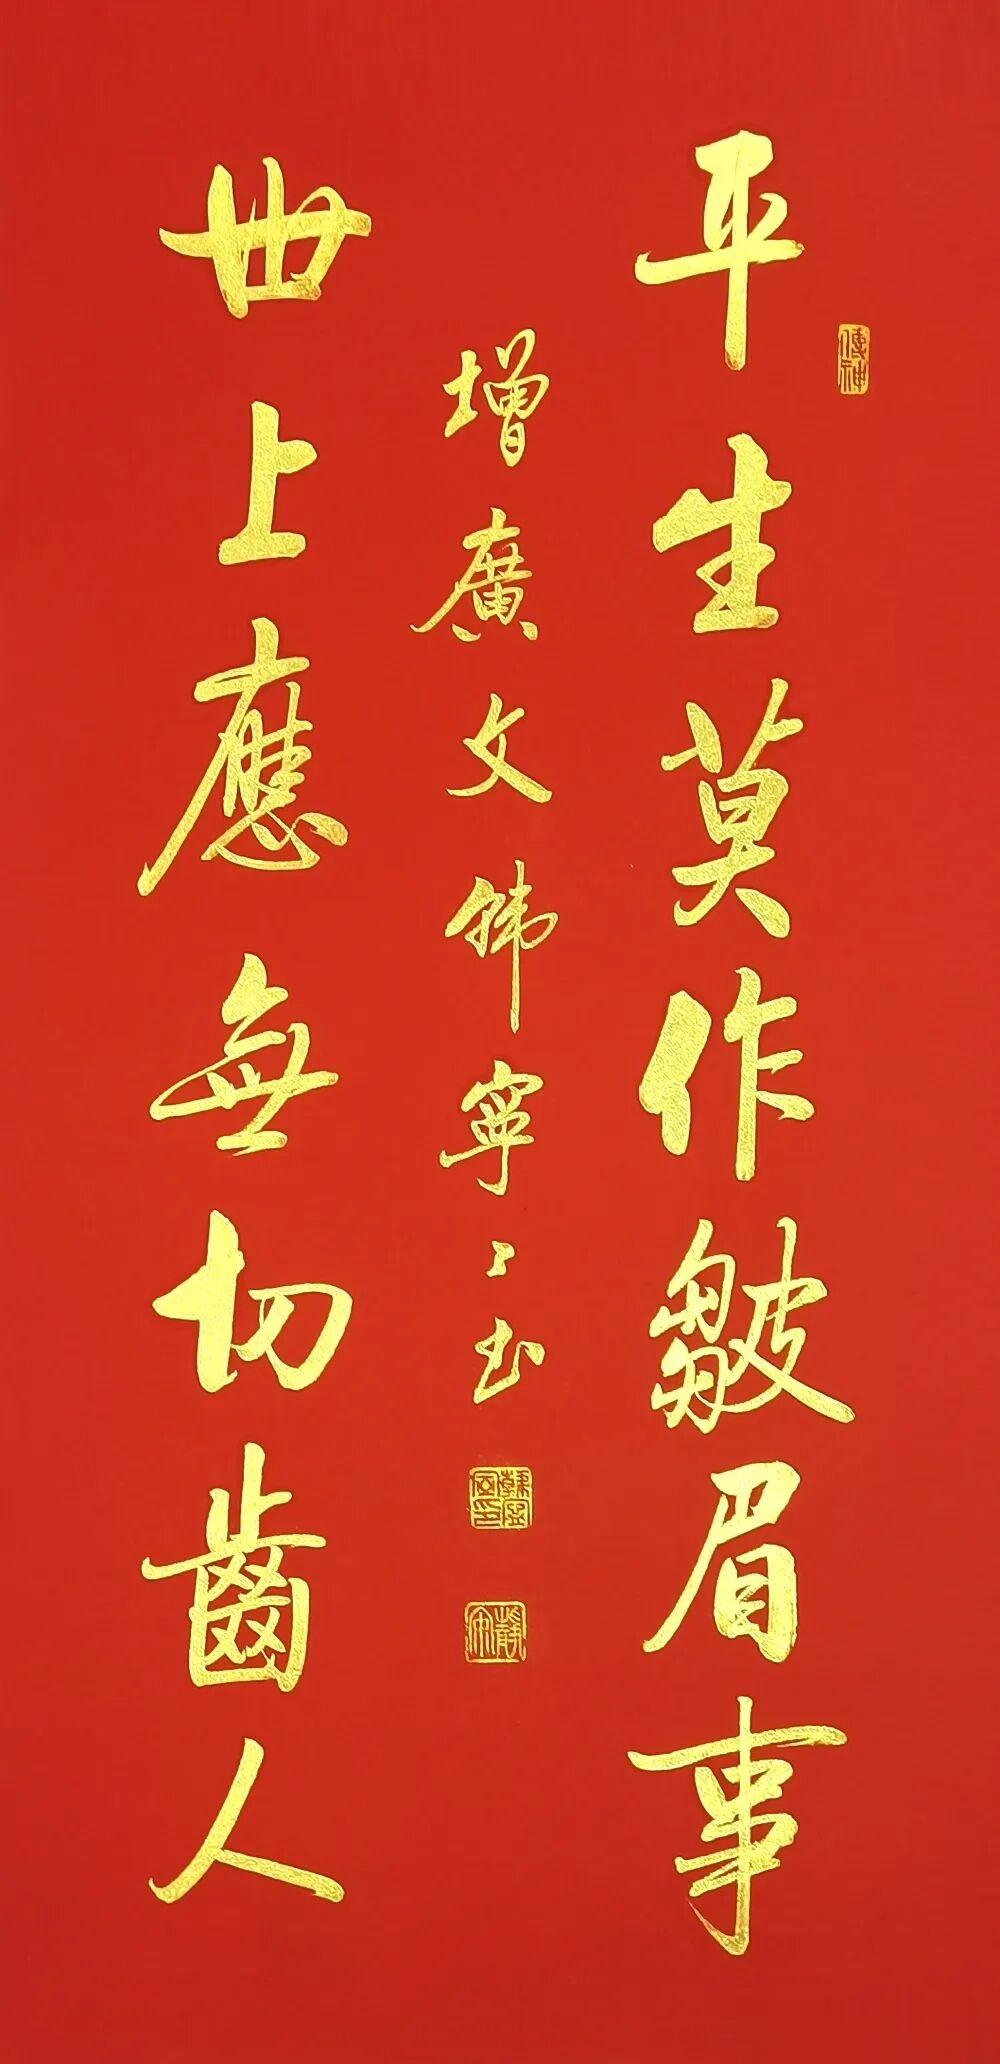 傳神
平生莫作皺眉事
世上應無切齒人
增廣文韩寧〻书